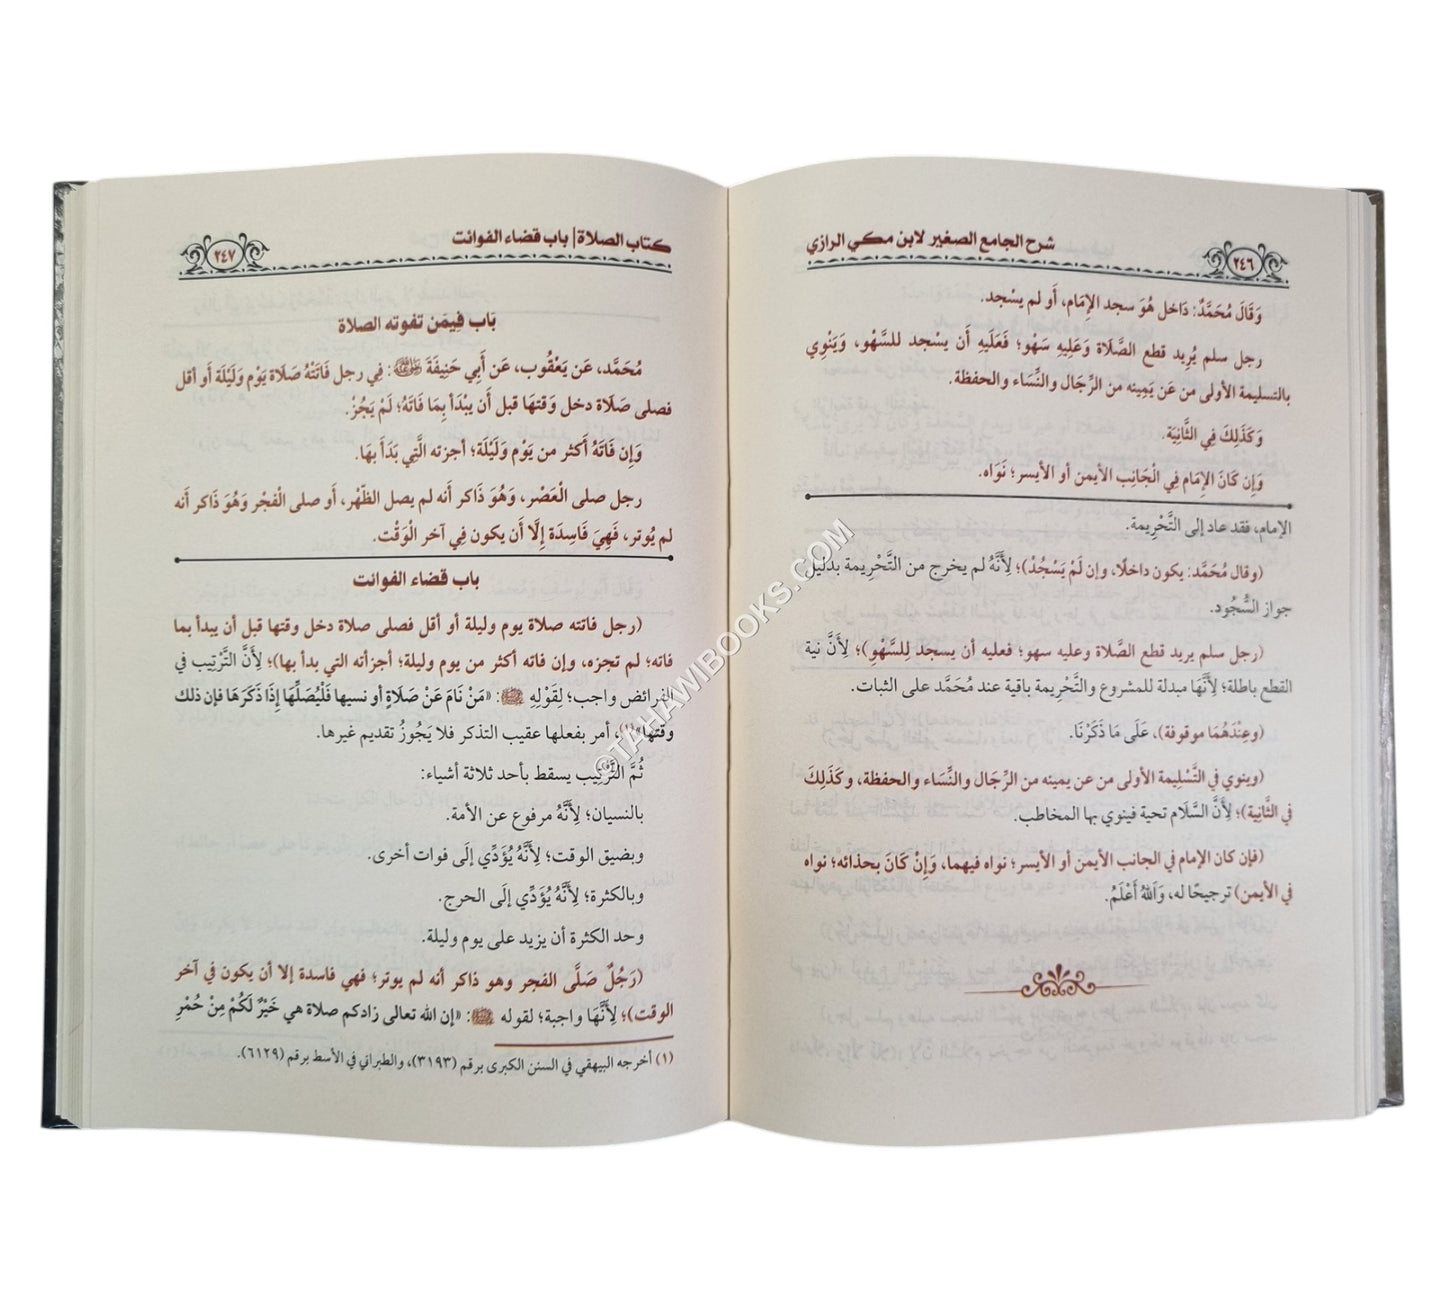 شرح الجامع الصغير لابن مكي الرازي
٢٤٦
وَقَالَ مُحَمَّدٌ: دَاخل هُوَ سجد الإِمَام، أَو لم يسْجد.
رجل سلم يُرِيد قطع الصَّلَاة وَعَلِيهِ سَهو؛ فَعَلَيهِ أَن يسْجد للسَّهْو، وَيَنْوِي
بالتسليمة الأولى من عَن يَمِينه من الرِّجَال والنِّسَاء والحفظة.
وَكَذَلِكَ فِي الثَّانِيَة.
وَإِن كَانَ الإِمَام فِي الْجَانِب الأيمن أو الأيسر؛ نَوَاه.
الإمام، فقد عاد إلى التَّحْرِيمة.
(وقال مُحَمَّد: يكون داخلًا، وإن لَمْ يَسْجُدْ)؛ لِأَنَّهُ لم يخرج من التَّحْرِيمة بدليل
جواز السُّجُود.
(رجل سلم يريد قطع الصَّلاة وعليه سهو؛ فعليه أن يسجد لِلسَّهْوِ)؛ لِأَنَّ نية
القطع باطلة؛ لِأَنَّهَا مبدلة للمشروع والتَّحْرِيمة باقية عند مُحَمَّد على الثبات.
(وعِنْدَهُمَا موقوفة)، عَلَى مَا ذَكَرْنَا.
(وينوي في التَّسْلِيمة الأولى من عن يمينه من الرِّجَال والنِّسَاء والحفظة، وكَذَلِكَ
في الثَّانِية)؛ لِأَنَّ السَّلَام تحية فينوي بها المخاطب.
(فإن كان الإمام في الجانب الأيمن أو الأيسر؛ نواه فيهما، وَإِنْ كَانَ بحذائه؛ نواه
في الأيمن) ترجيحًا له، وَاللهُ أَعْلَمُ.
كتاب الصلاة | باب قضاء الفوائت
٢٤٧
بَاب فِيمَن تفوته الصلاة
مُحَمَّد، عَن يَعْقُوب، عَن أَبِي حَنِيفَةَ ﵁: فِي رجل فَاتَتْهُ صَلَاة يَوْم وَلَيْلَة أَو أقل
فصلى صَلَاة دخل وَقتهَا قبل أَن يبْدَأ بِمَا فَاتَهُ؛ لَمْ يَجُزْ.
وَإِن فَاتَهُ أَكثر من يَوْم وَلَيْلَة؛ أجزته الَّتِي بَدَأَ بهَا.
رجل صلى الْعَصْر، وَهُوَ ذَاكر أَنه لم يصل الظّهْر، أَو صلى الْفَجْر وَهُوَ ذَاكر أَنه
لم يُوتر، فَهِيَ فَاسِدَة إِلَّا أَن يكون فِي آخر الْوَقْت.
باب قضاء الفوائت
(رجل فاتته صلاة يوم وليلة أو أقل فصلى صلاة دخل وقتها قبل أن يبدأ بما
فاته؛ لم تجزه، وإن فاته أكثر من يوم وليلة؛ أجزأته التي بدأ بها)؛ لِأَنَّ التَّرْتِيب في
الفرائض واجب؛ لِقَوْلِهِ ﷺ: «مَنْ نَامَ عَنْ صَلَاةٍ أو نسيها فَلْيُصَلِّهَا إِذَا ذَكَرَهَا فإن ذلك
وقتها»(١)، أمر بفعلها عقيب التذكر فلا يَجُوزُ تقديم غيرها.
ثُمَّ التَّرْتِيب يسقط بأحد ثلاثة أشياء:
بالنسيان؛ لِأَنَّهُ مرفوع عن الأمة.
وبضيق الوقت؛ لِأَنَّهُ يُؤَدِّي إلَى فوات أخرى.
وبالكثرة؛ لِأَنَّهُ يُؤَدِّي إلَى الحرج.
وحد الكثرة أن يزيد على يوم وليلة.
(رَجُلٌ صَلَّى الفجر وهو ذاكر أنه لم يوتر؛ فهي فاسدة إلا أن يكون في آخر
الوقت)؛ لِأَنَّهَا واجبة؛ لقوله ﷺ: «إن الله تعالى زادكم صلاة هي خَيْرٌ لَكُمْ مِنْ حُمْرِ
(١) أخرجه البيهقي في السنن الكبرى برقم (٣١٩٣)، والطبراني في الأسط برقم (٦١٢٩).
©TAHAWIBOOKS.COM